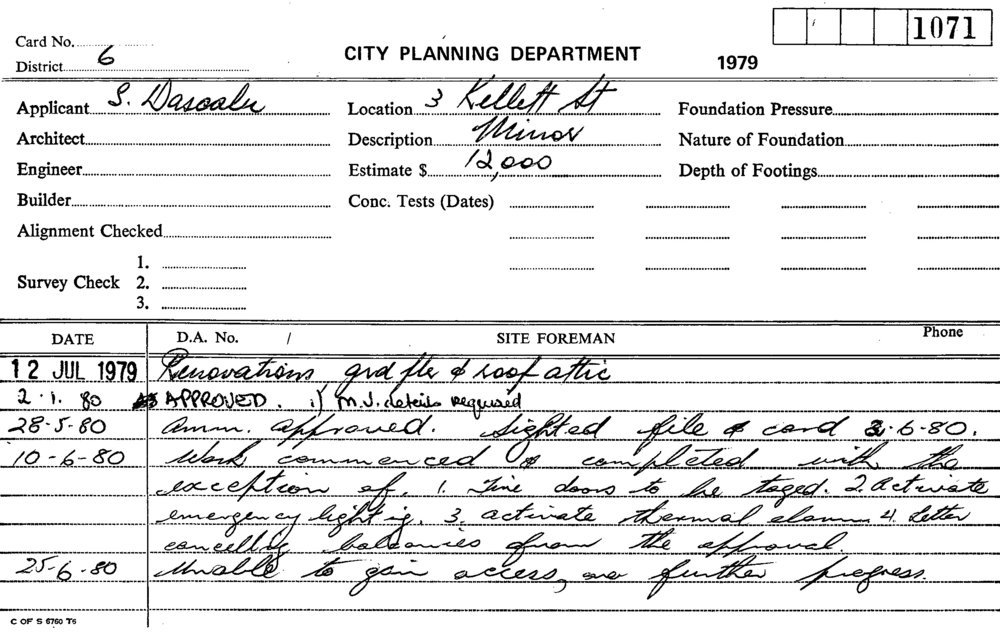 1071
Card No.
District 6
CITY PLANNING DEPARTMENT
1979
Applicant S. Dascalu
Location 3 Kellett St
Foundation Pressure
Architect
Description Minor
Nature of Foundation
Engineer
Estimate $ 12,000
Depth of Footings
Builder
Conc. Tests (Dates)
Alignment Checked
Survey Check
1.
2.
3.
DATE D.A. No. / SITE FOREMAN Phone
12 JUL 1979 Renovations grd flr & roof attic
2.1.80 APPROVED. 1) M.S. details required
28-5-80 Amm. approved. Sighted file & card 2-6-80.
10-6-80 Work commenced & completed with the
exception of. 1. Fire doors to be taged. 2. Activate
emergency lightig. 3. activate thermal alarm 4. Letter
cancellig balconies from the approval.
25-6-80 Unable to gain access, no further progress.
C OF S 6760 T6